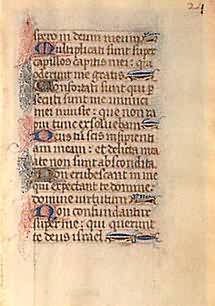 24
spero in deum meum
Multiplicati sunt super
capillos capitis mei: qui
oderunt me gratis
Confortati sunt qui p
secuti sunt me inimici
mei iniuste: que non ra
pui tunc exsolvebam
Deus tu scis insipienti
am meam: et delicta mea
a te non sunt abscondita
Non erubescant in me
qui expectant te domine
domine virtutum
Non confundantur
super me: qui querunt
te deus israel